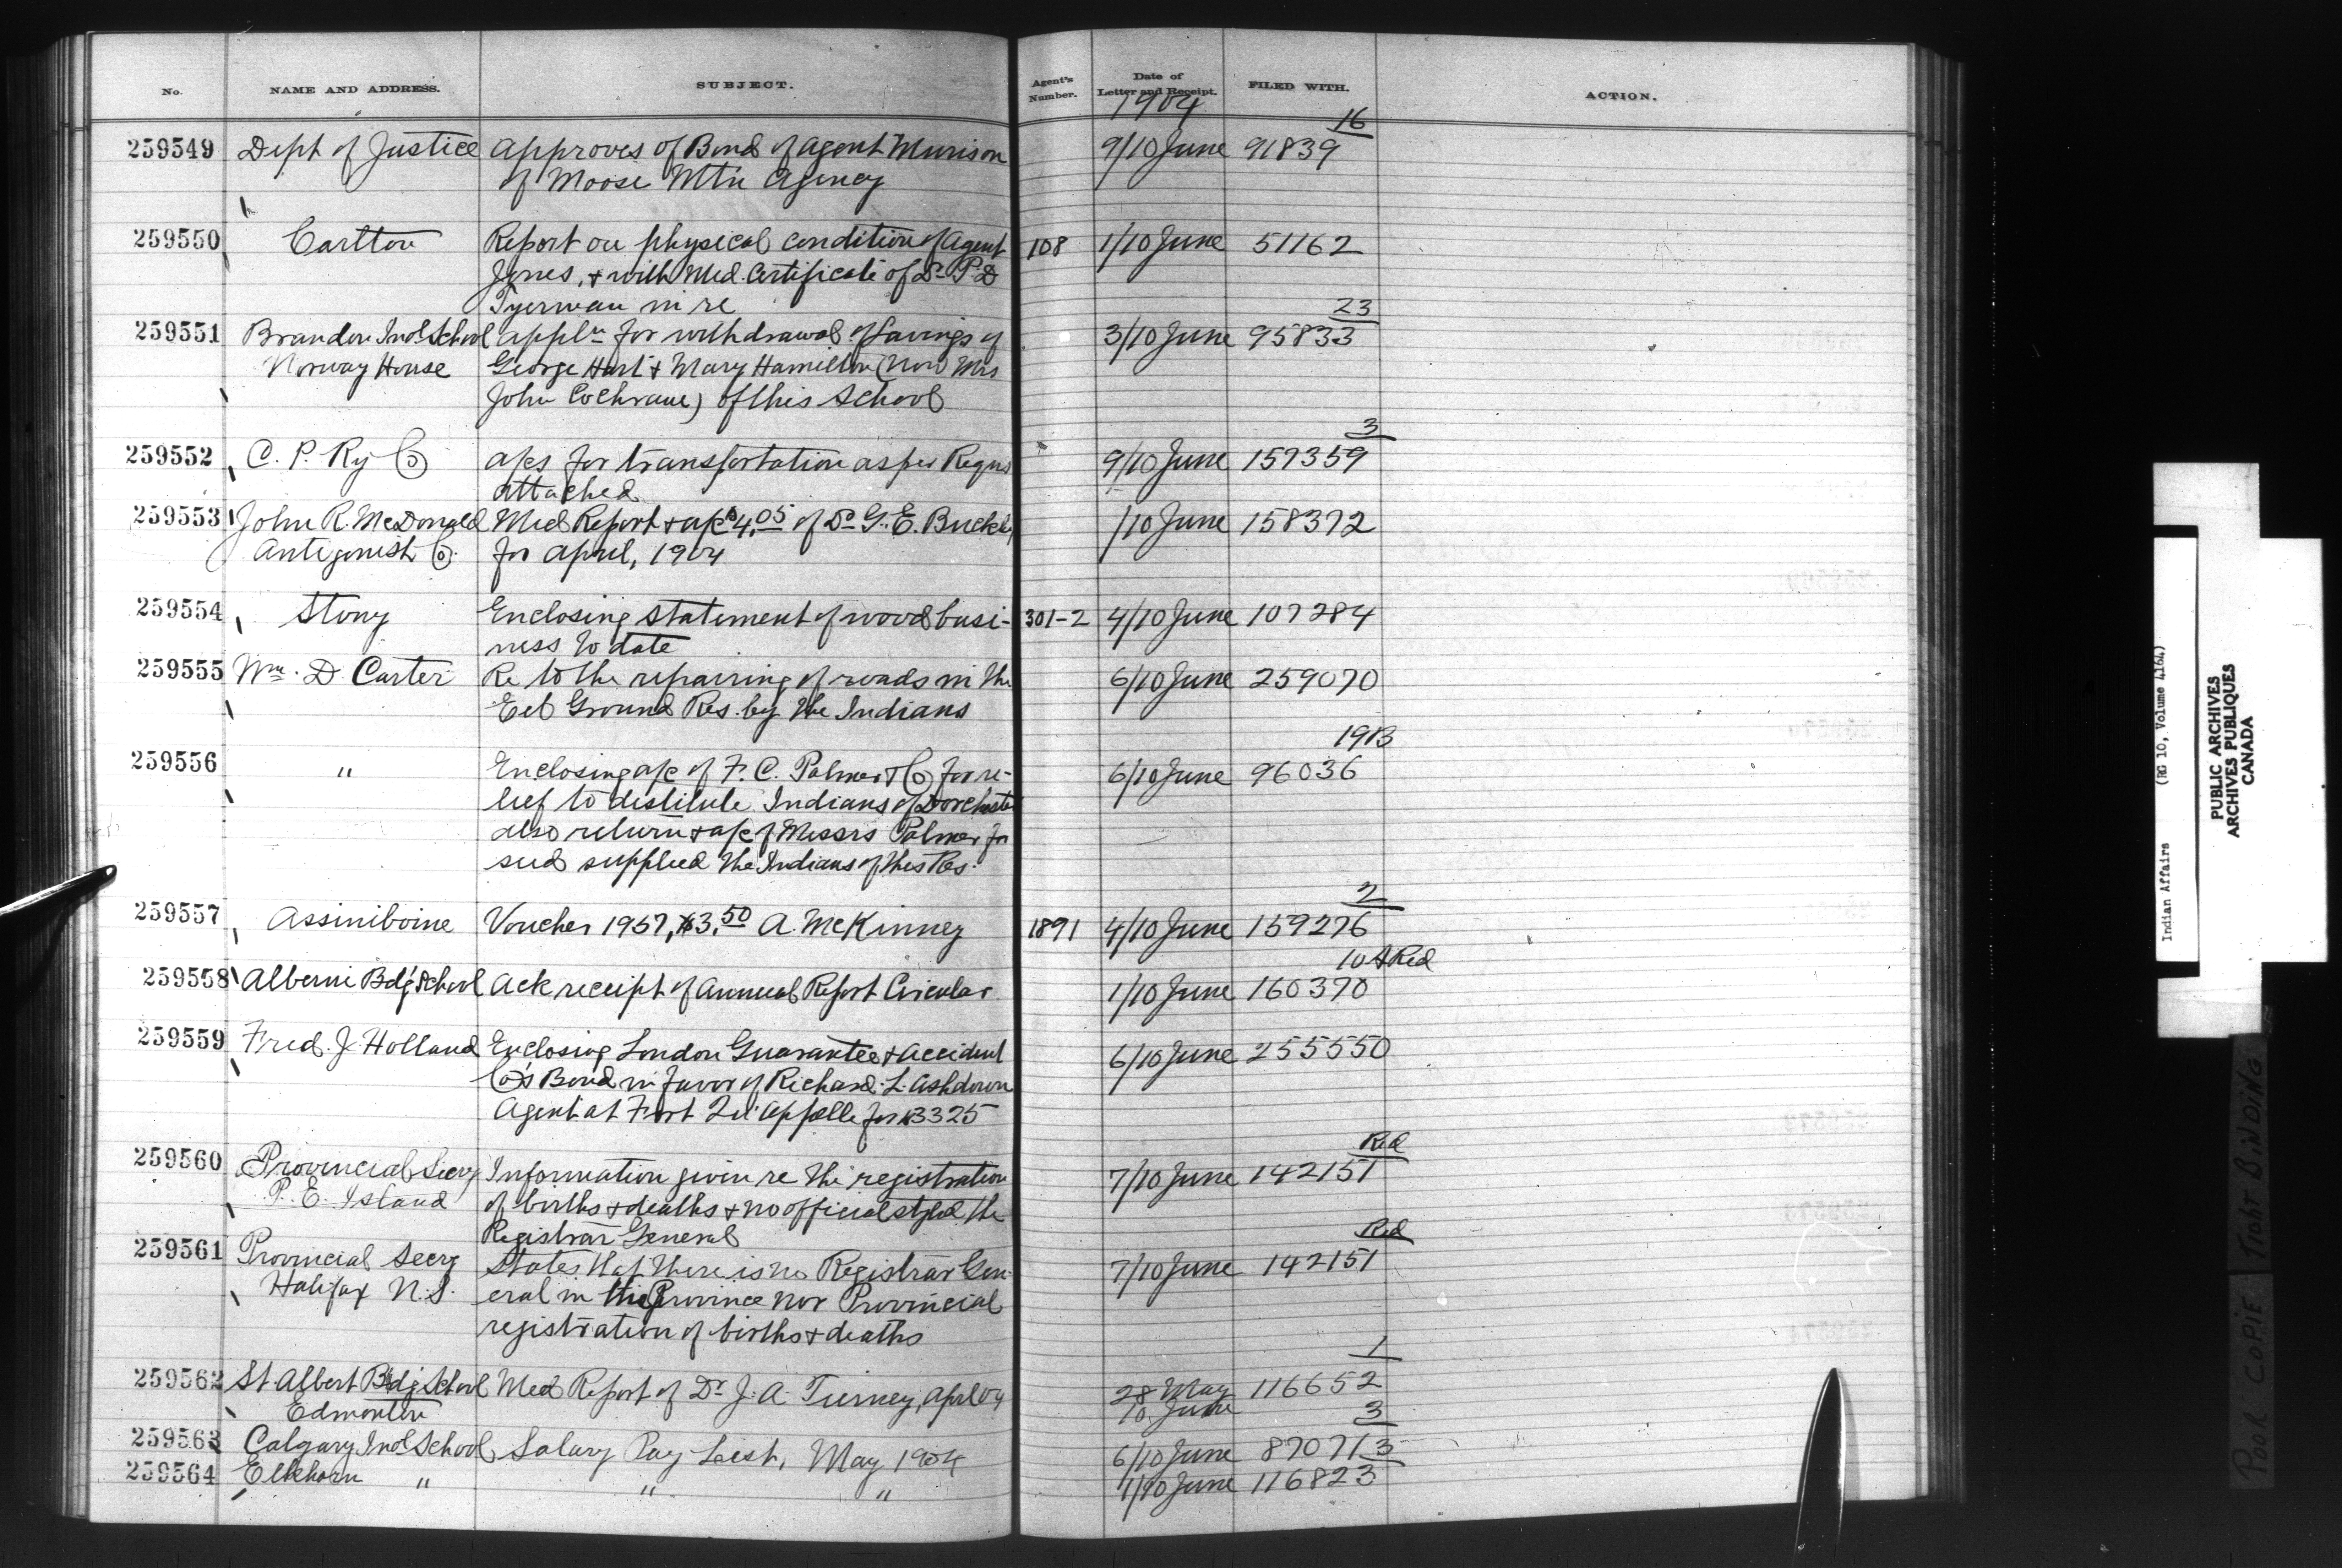 No. NAME AND ADDRESS. SUBJECT. Agent's Number. Date of Letter and Receipt. FILED WITH. ACTION.
1904
16
259549 Dept of Justice Approves of Bond of Agent Murison 9/10 June 91839
of Moose Mtn Agency
259550 Carlton Report on physical condition of Agent 108 1/10 June 51162
Jones, & with Med. Certificate of Dr P. D
Tyerman in re
23
259551 Brandon Indl School Appln for withdrawal of Savings of 3/10 June 95833
Norway House George Hart & Mary Hamilton (Now Mrs
John Cochrane) of this School
3
259552 C. P. Ry Co a/cs for transportation as per Requs 9/10 June 157359
attached
259553 John R. McDonald Med Report & a/c $4.05 of Dr G. E. Buckley 1/10 June 158372
Antigonish Co. for April, 1904
259554 Stony Enclosing statement of wood busi- 301-2 4/10 June 107284
ness to date
259555 Wm. D. Carter Re to the repairing of roads in the 6/10 June 259070
Eel Ground Res. by the Indians
19B
259556 " Enclosing a/c of F. C. Palmer & Co for re- 6/10 June 96036
lief to destitute Indians of Dorchester
also return & a/c of Messrs Palmer for
seed supplied the Indians of this Res.
2
259557 Assiniboine Voucher 1957, $3.50 A. McKinney 1891 4/10 June 159276
10 A Red
259558 Alberni Bdg School Ack receipt of Annual Report Circular 1/10 June 160370
259559 Fred. J. Holland Enclosing London Guarantee & Accident 6/10 June 255550
Co's Bond in favor of Richard L. Ashdown
Agent at Fort Qu'Appelle for $3325
Red
259560 Provincial Secry Information given re the registration 7/10 June 142151
P. E. Island of births & deaths & no official styled the
Registrar General
Red
259561 Provincial Secry States that there is no Registrar Gen- 7/10 June 142151
Halifax N.S. eral in this Province nor Provincial
registration of births & deaths
1
259562 St Albert Bdg School Med Report of Dr J. A. Tierney, April 04 28 May 116652
Edmonton 10 June
3
259563 Calgary Indl School Salary Pay List, May 1904 6/10 June 87071
3
259564 Elkhorn " " " 1/10 June 116823
Indian Affairs (RG 10, Volume 4164)
PUBLIC ARCHIVES
ARCHIVES PUBLIQUES
CANADA
POOR COPIE TIGHT BINDING